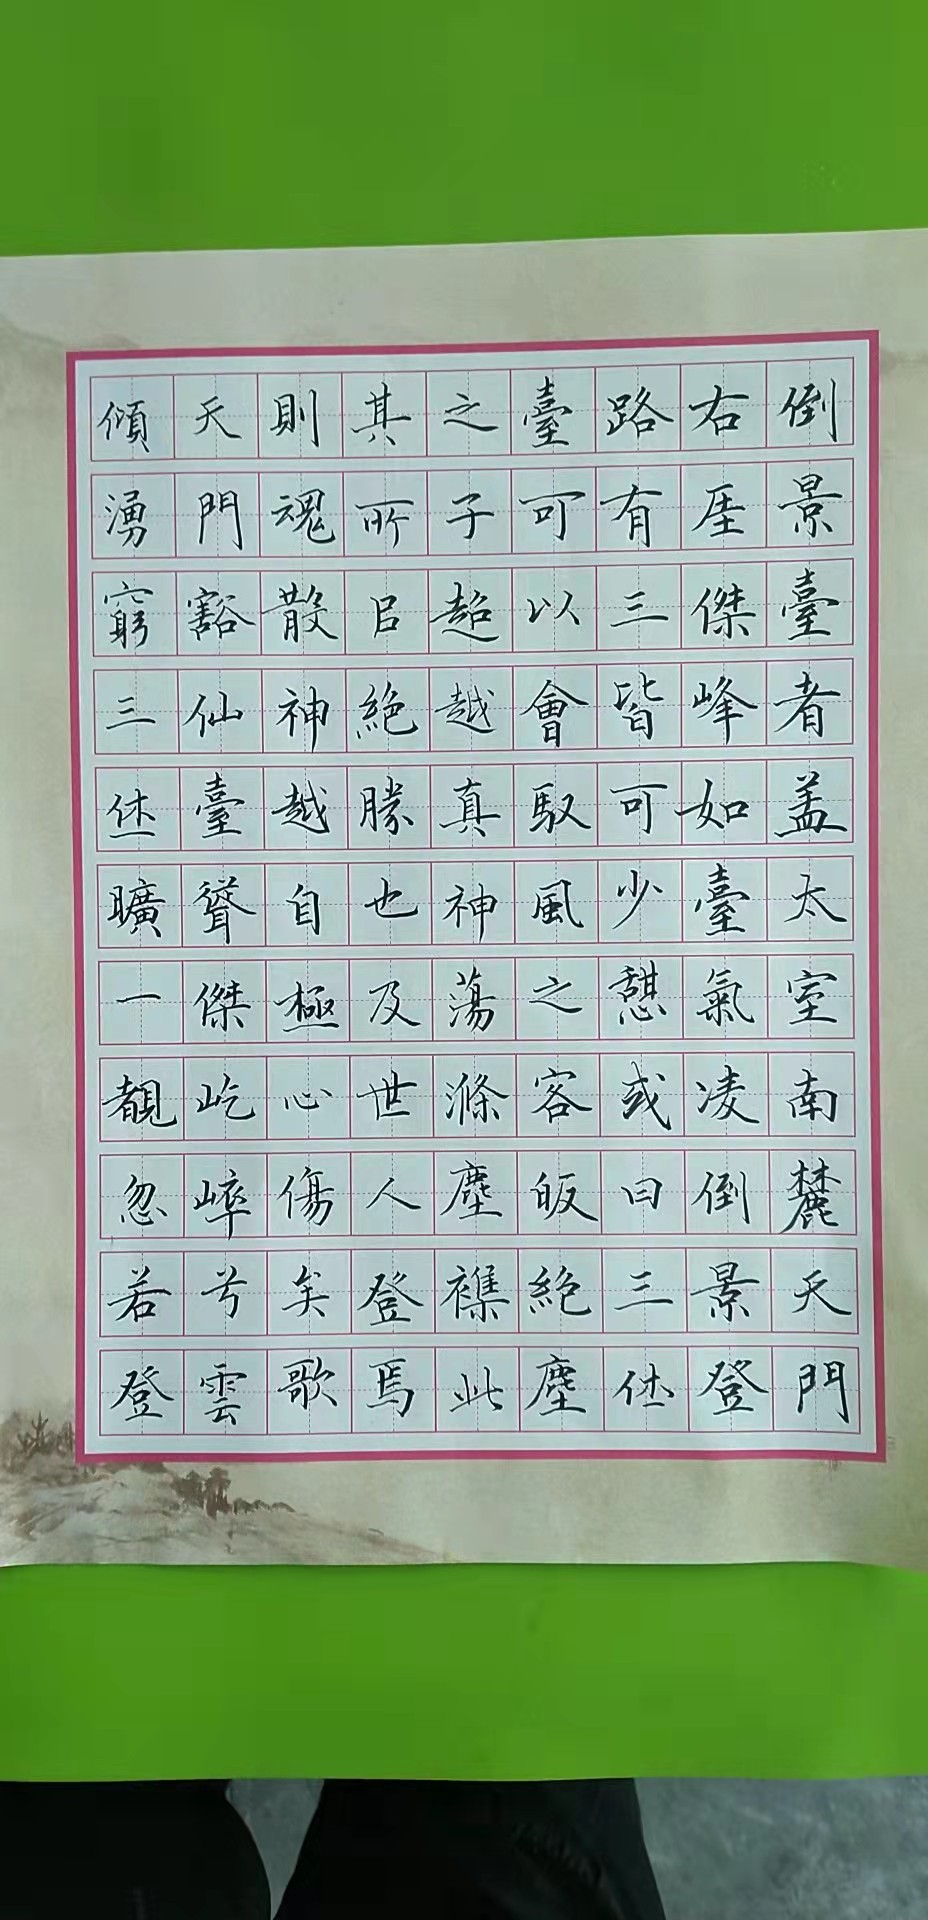 倒景臺者盖太室南麓天門
右厓傑峰如臺氣凌倒景登
路有三皆可少憩或曰三休
臺可以會馭風之客皈絕塵
之子超越真神蕩滌塵襍此
其所㠯絕勝也及世人登焉
則魂散神越自極心傷矣歌
天門豁仙臺聳傑屹崪兮雲
傾湧窮三休曠一覩忽若登